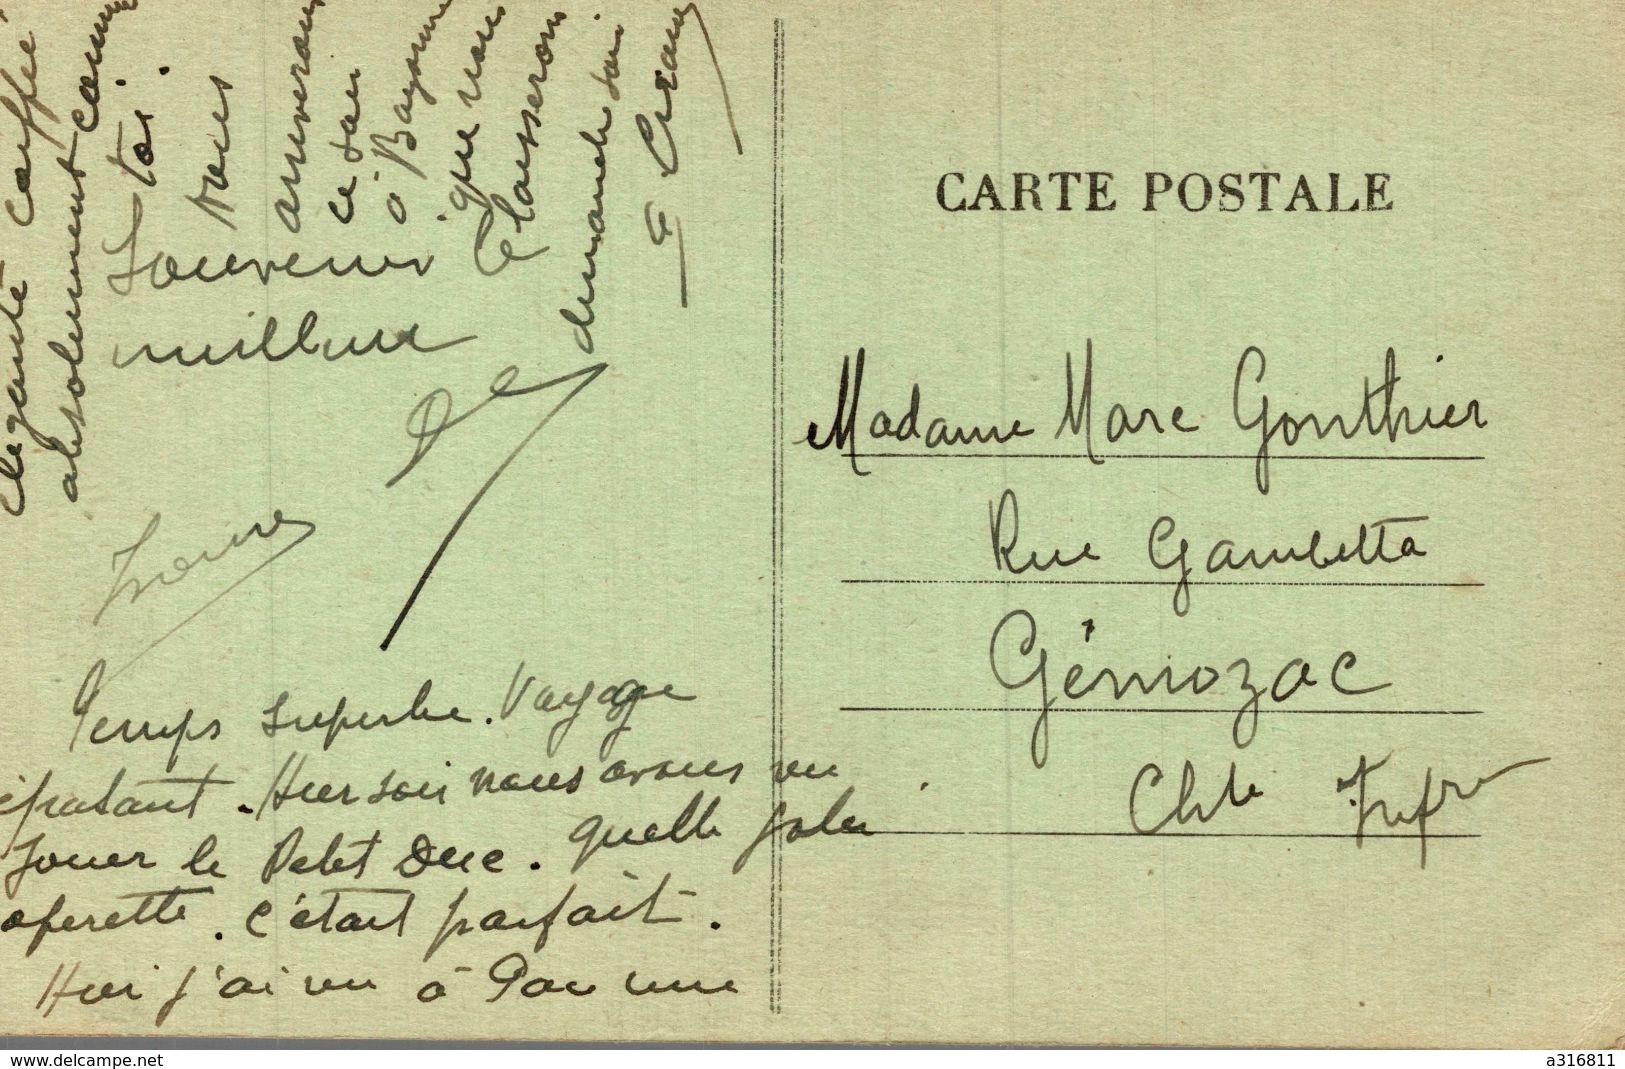 Souvenir
meilleur
Temps superbe. Voyage
épatant. Hier soir nous avons vu
jouer le Petit Duc. quelle jolie
operette. c'était parfait.
Hier j'ai vu à Pau une
élégante coiffée
absolument comme
toi.
Nous
arriverons
ce soir
à Bayonne
que nous
laisserons
dimanche soir
CARTE POSTALE
Madame Marc Gonthier
Rue Gambetta
Gémozac
Chte Infre
www.delcampe.net
a316811